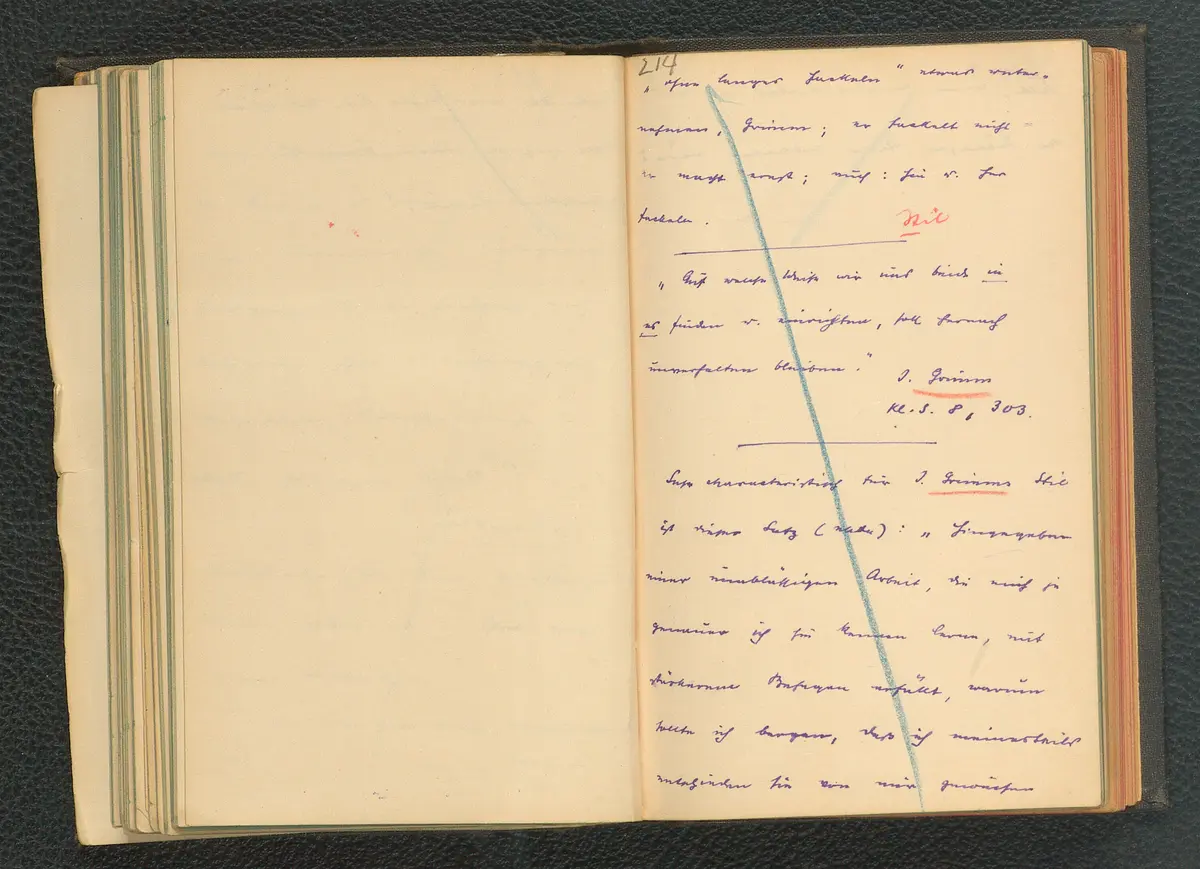 214
„ ohne langes Fackeln “ etwas unter-
nehmen, Grimm; er fackelt nicht =
er macht ernst; auch: hin u. her
fackeln.
Stil
„ Auf welche Weise wir uns beide in
es finden u. einrichten, soll hernach
unverhalten bleiben.“
J. Grimm
Kl. S. 8, 303.
Sehr charakteristisch für J. Grimms Stil
ist dieser Satz ( ): „ Hingegeben
einer unablässigen Arbeit, die mich je
genauer ich sie kennen lerne, mit
stärkerem Behagen erfüllt, warum
sollte ich bergen, daß ich meinestheils
entschieden sie von mir gewiesen